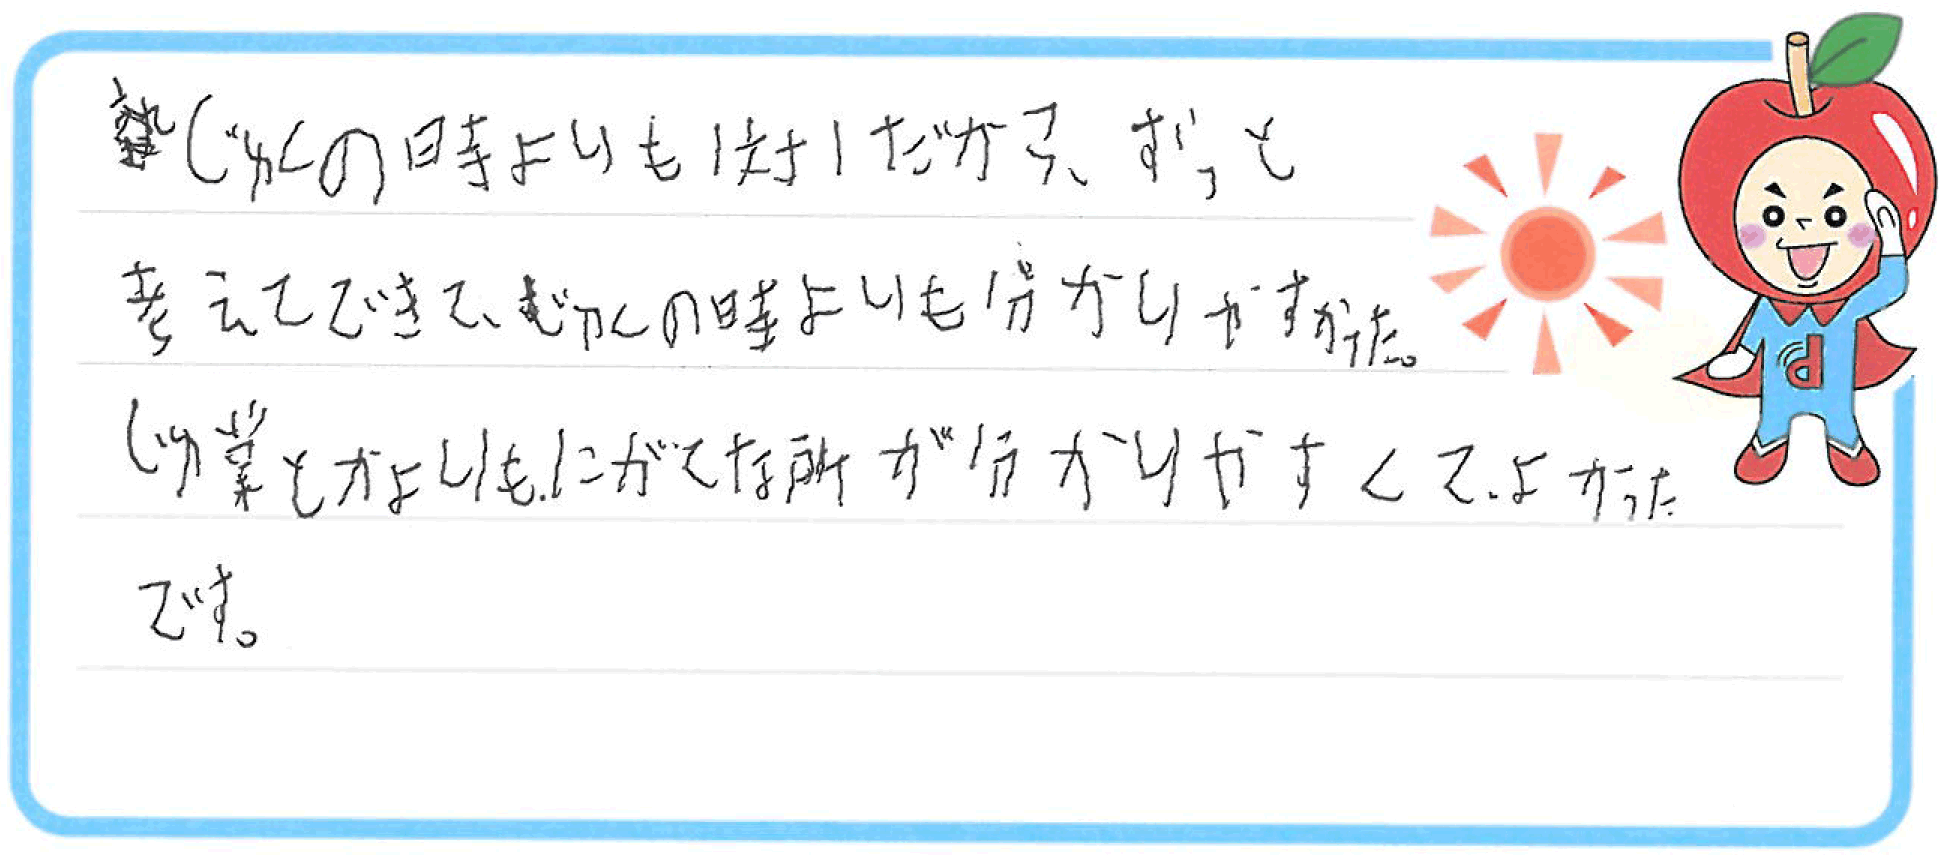 じゅくの時よりも1対1だから、ずっと
考えてできて、じゅくの時よりも分かりやすかった。
じゅ業とかよりも、にがてな所が分かりやすくて、よかった
です。